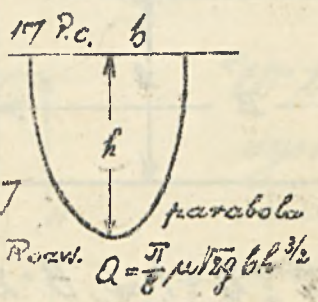 17 P.c. b
h
7
parabola
Rozw.
Q = π/8 μ√2g b h^3/2